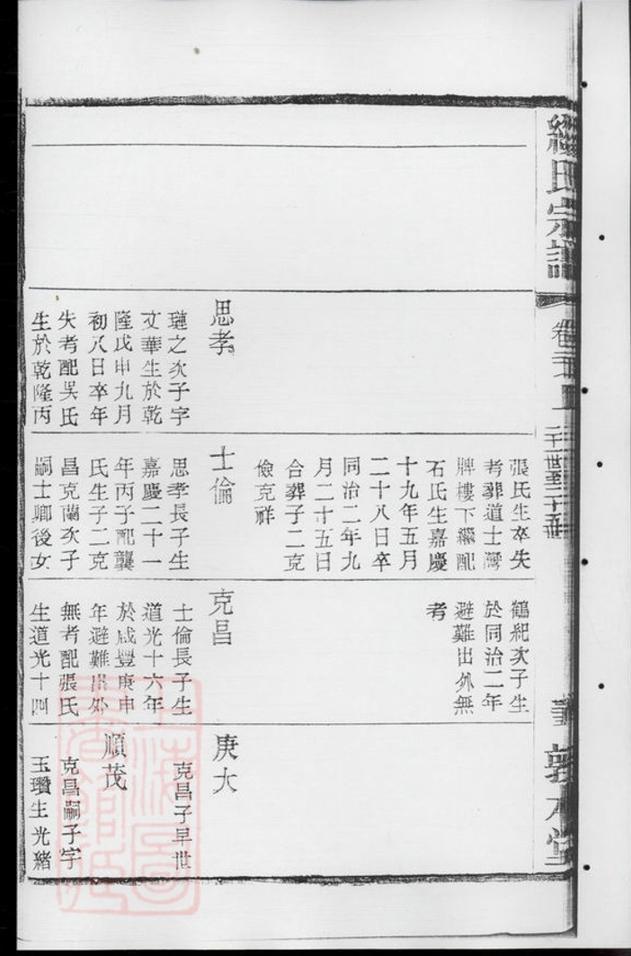 氏宗譜
卷
二十世至二十五世
敦本堂
思孝
璉之次子字
文華生於乾
隆戊申九月
初八日卒年
失考配吳氏
生於乾隆丙
張氏生卒失
考葬道士灣
牌樓下繼配
石氏生嘉慶
十九年五月
二十八日卒
同治二年九
月二十五日
合葬子二克
儉克祥
士倫
思孝長子生
嘉慶二十一
年丙子配龔
氏生子二克
昌克蘭次子
嗣士卿後女
鶴紀次子生
於同治二年
避難出外無
考
克昌
士倫長子生
道光十六年
於咸豐庚申
年避難出外
無考配張氏
生道光十四
庚大
克昌子早世
順茂
克昌嗣子字
玉瓚生光緒